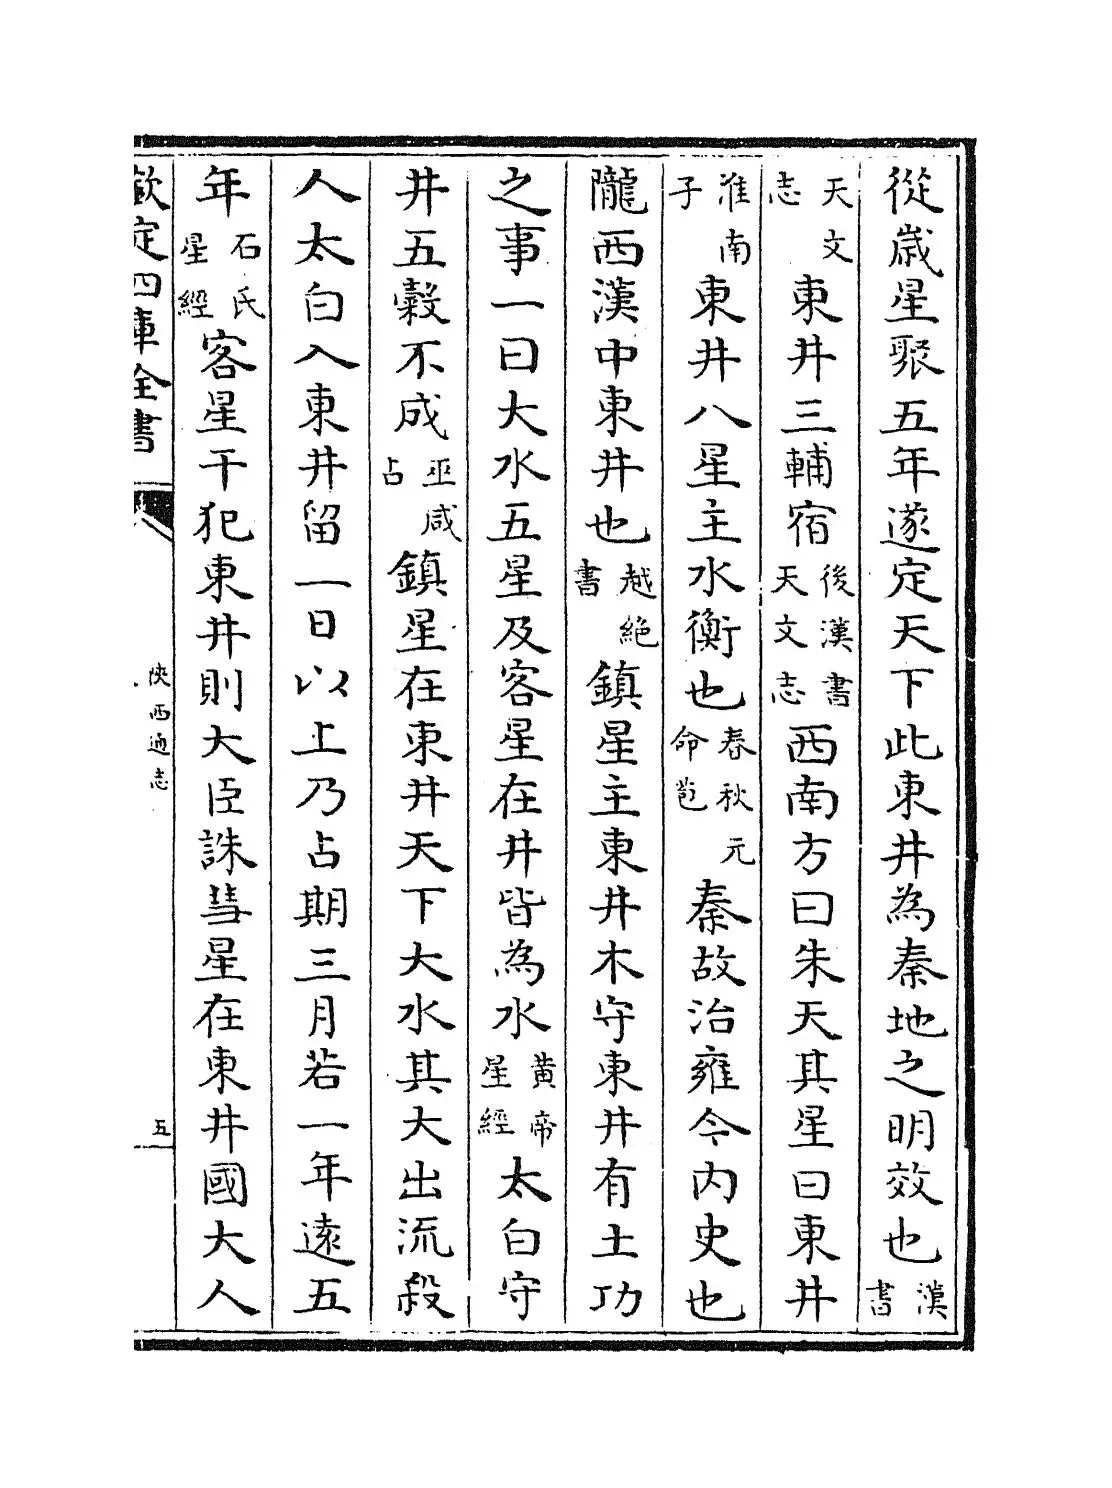 從歲星聚五年遂定天下此東井為秦地之明效也漢書
天文志東井三輔宿後漢書天文志西南方曰朱天其星曰東井
淮南子東井八星主水衡也春秋元命苞秦故治雍今内史也
隴西漢中東井也越絶書鎮星主東井木守東井有土功
之事一曰大水五星及客星在井皆為水黄帝星經太白守
井五穀不成巫咸占鎮星在東井天下大水其大出流殺
人太白入東井留一日以上乃占期三月若一年遠五
年石氏星經客星干犯東井則大臣誅彗星在東井國大人
欽定四庫全書
陜西通志
五